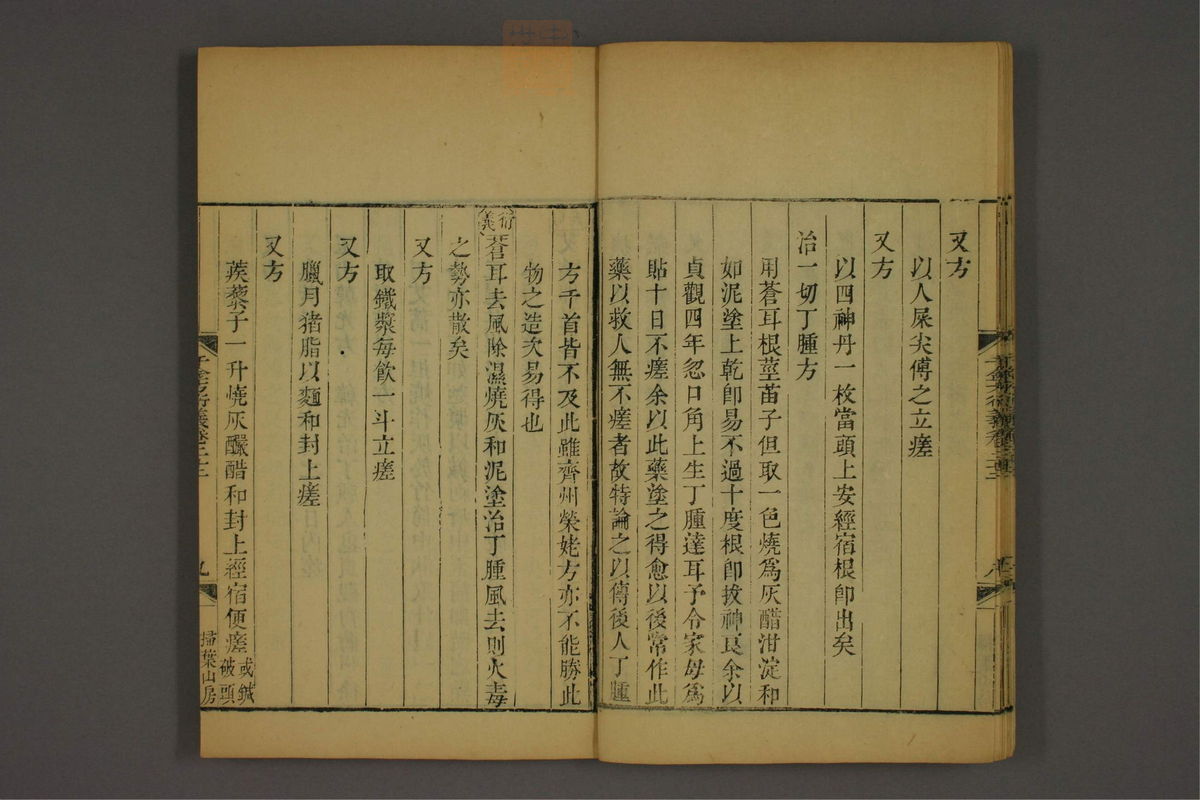 又方
以人屎尖傅之立瘥
又方
以四神丹一枚當頭上安經宿根卽出矣
治一切丁腫方
用蒼耳根莖苗子但取一色燒爲灰醋泔淀和
如泥塗上乾卽易不過十度根卽拔神良余以
貞觀四年忽口角上生丁腫達耳予令家母爲
貼十日不瘥余以此藥塗之得愈以後常作此
藥以救人無不瘥者故特論之以傳後人丁腫
方千首皆不及此雖齊州榮姥方亦不能勝此
物之造次易得也
衍義
蒼耳去風除濕燒灰和泥塗治丁腫風去則火毒
之勢亦散矣
又方
取鐵漿每飲一斗立瘥
又方
臘月猪脂以麵和封上瘥
又方
蒺藜子一升燒灰釅醋和封上經宿便瘥或鍼
破頭
千金方衍義卷二十二
九
掃葉山房